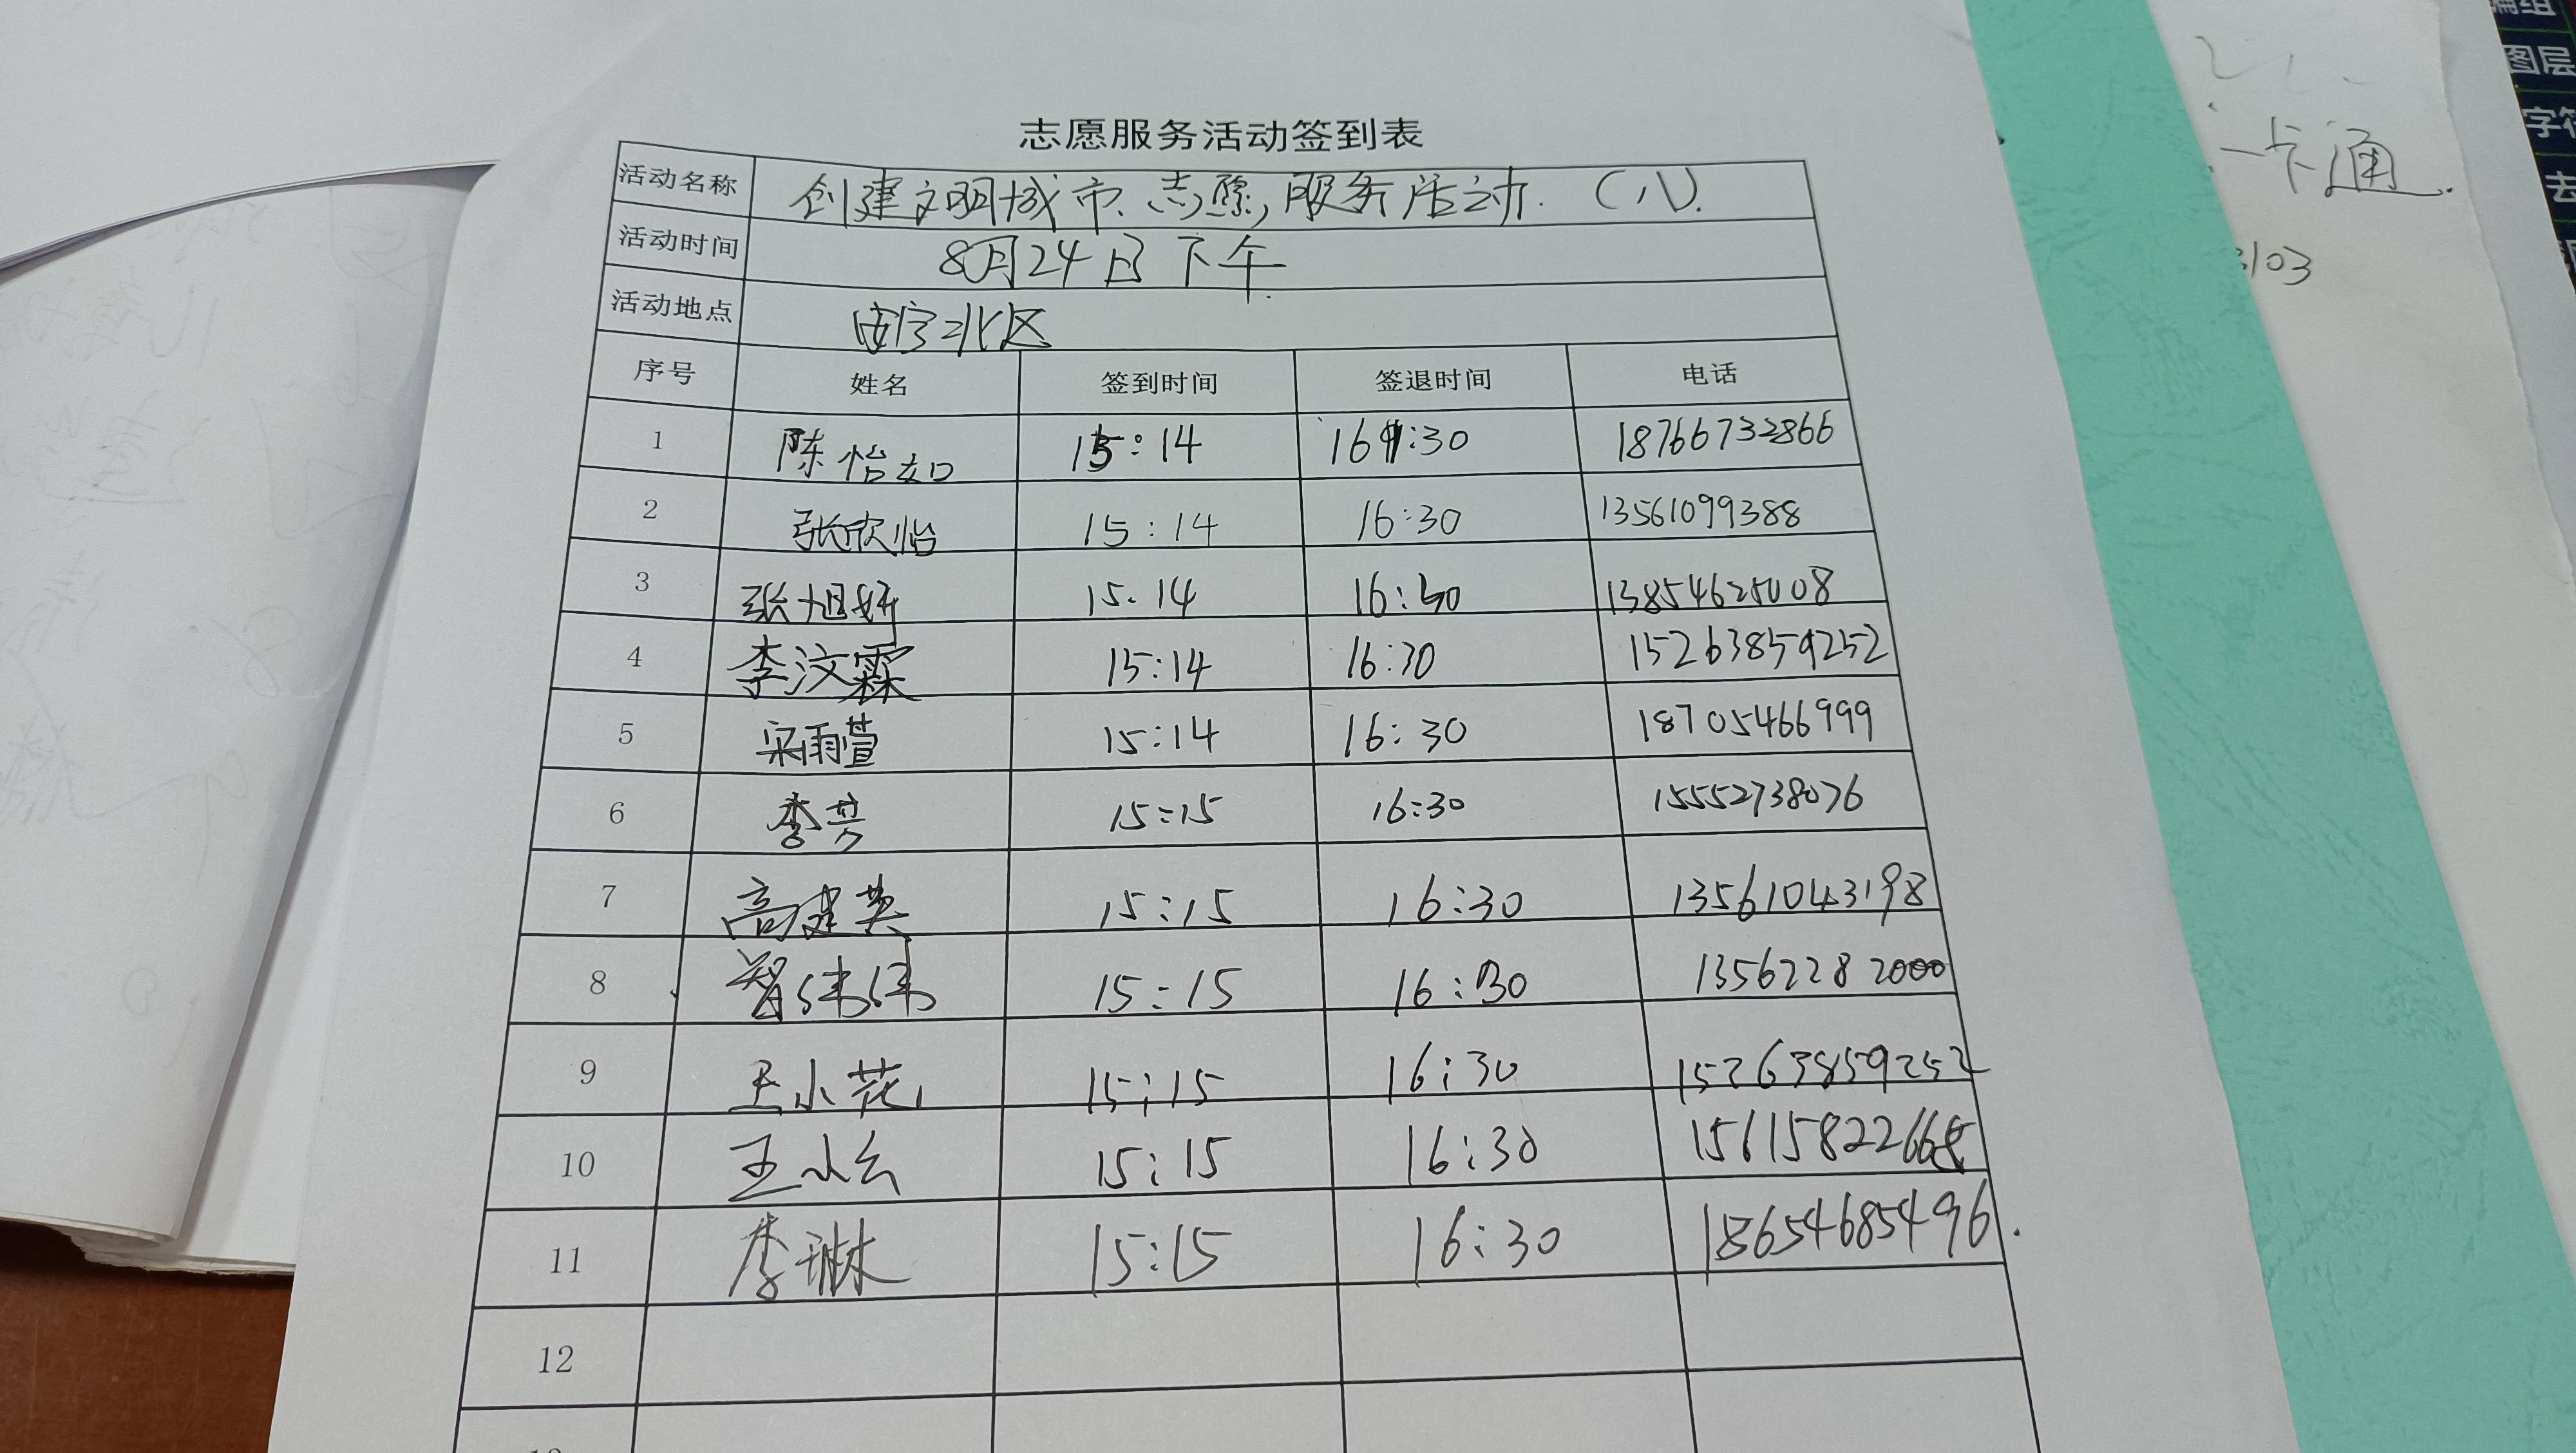 志愿服务活动签到表
活动名称 创建文明城市、志愿服务活动. (八).
活动时间 8月24日下午
活动地点 南宁北区
序号 姓名 签到时间 签退时间 电话
1 陈怡如 15:14 16:30 18766732866
2 张欣怡 15:14 16:30 13561099388
3 张旭妍 15:14 16:30 13854625008
4 李汶霖 15:14 16:30 15263859252
5 宋雨萱 15:14 16:30 18705466999
6 李芳 15:15 16:30 15552738076
7 高建英 15:15 16:30 13561043198
8 智伟伟 15:15 16:30 13562282000
9 王小花 15:15 16:30 15263859252
10 王小云 15:15 16:30 15615822668
11 李琳 15:15 16:30 18654685496.
12
一卡通.
3103
编组
图层
字符
去